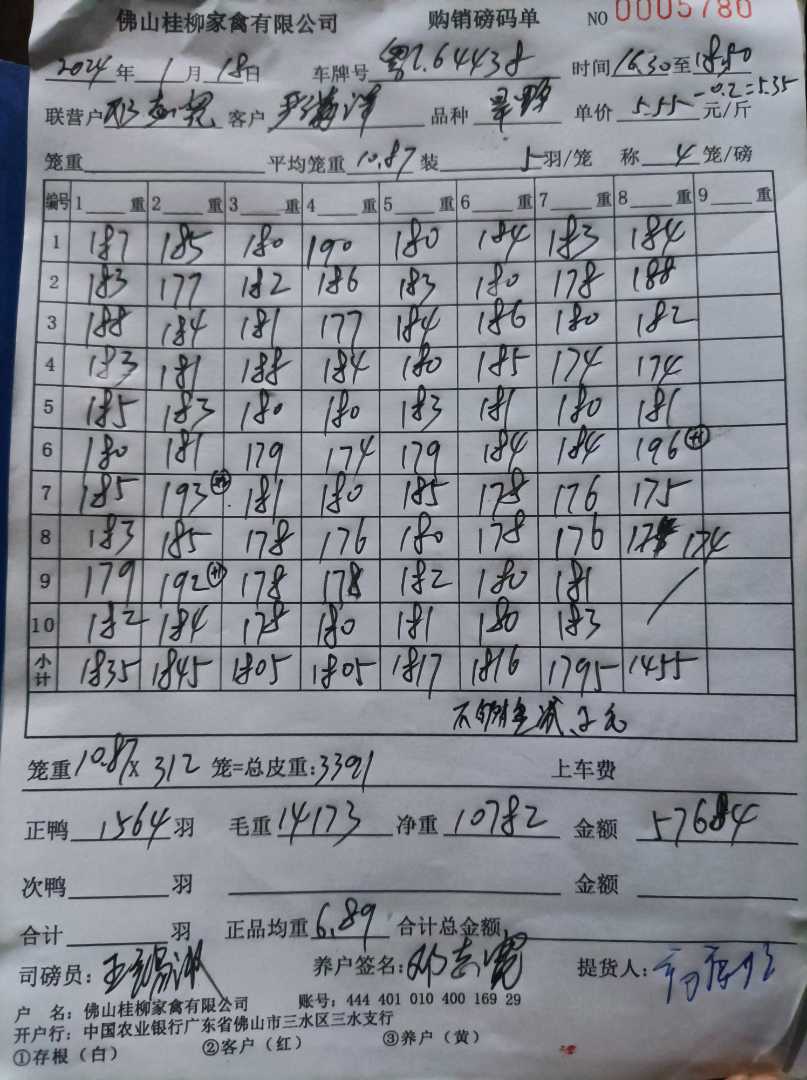 佛山桂柳家禽有限公司 购销磅码单 NO 0005780
2024 年 1 月 18 日 车牌号 粤L.64438 时间 16.30 至 18.50
联营户 邓志宽 客户 品种 单价 5.55 -0.2=5.35 元/斤
笼重 平均笼重 10.87 装 5 羽/笼 称 4 笼/磅
编号 1 重 2 重 3 重 4 重 5 重 6 重 7 重 8 重 9 重
1 187 185 180 190 180 184 183 184
2 183 177 182 186 183 180 178 188
3 188 184 181 177 184 186 180 182
4 183 181 188 184 180 185 174 174
5 185 183 180 180 183 181 180 181
6 180 181 179 174 179 184 184 196 +1
7 185 193 +1 181 180 185 178 176 175
8 183 185 178 176 180 178 176 174
9 179 192 +1 178 178 182 180 181
10 182 184 178 180 181 180 183
小计 1835 1845 1805 1805 1817 1816 1795 1455
笼重 10.87 X 312 笼=总皮重: 3391 上车费
正鸭 1564 羽 毛重 14173 净重 10782 金额 57684
次鸭 羽 金额
合计 羽 正品均重 6.89 合计总金额
司磅员: 养户签名: 邓志宽 提货人:
户 名: 佛山桂柳家禽有限公司 账号: 444 401 010 400 169 29
开户行: 中国农业银行广东省佛山市三水区三水支行
①存根(白) ②客户(红) ③养户(黄)